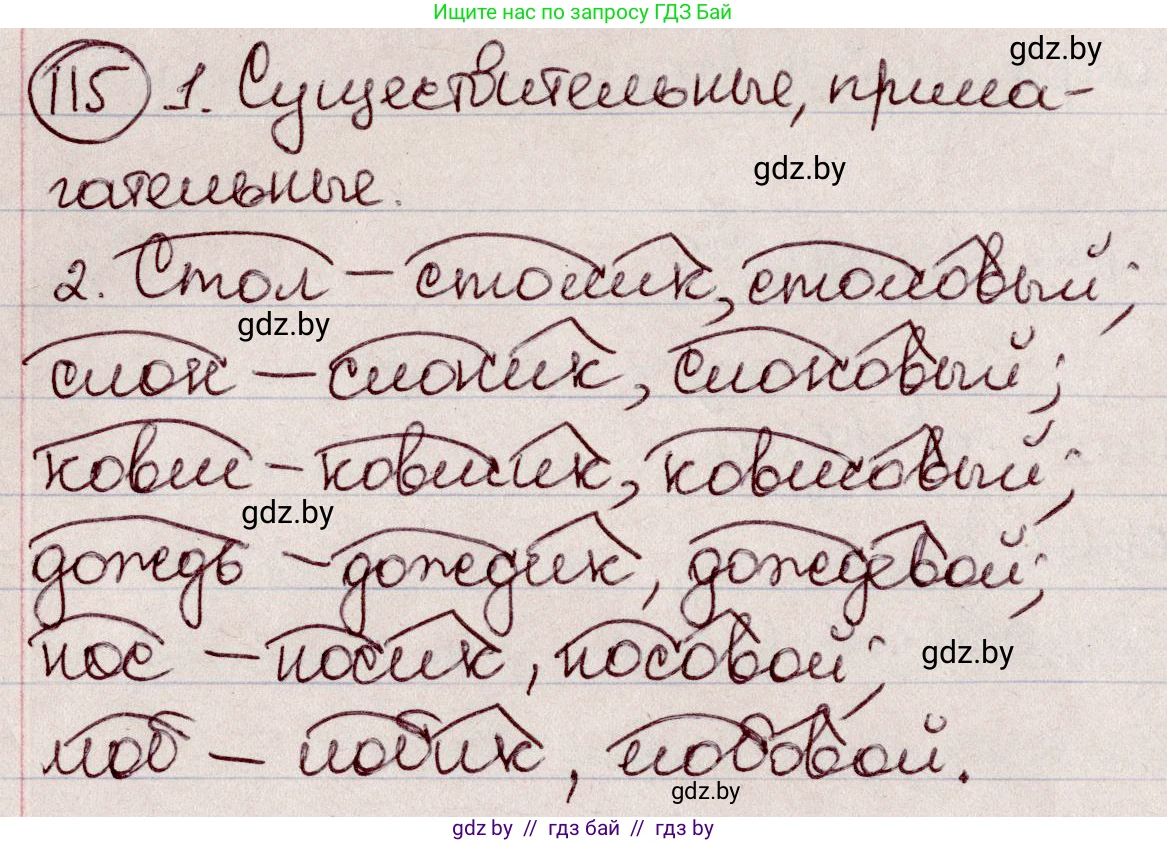 Ищите нас по запросу ГДЗ Бай
gdz.by
115 1. Существительные, прила-
gdz.by
гательные.
2. Стол – столик, столовый;
gdz.by
слон – слоник, слоновый;
ковш – ковшик, ковшовый;
gdz.by
дождь – дождик, дождевой;
нос – носик, носовой;
gdz.by
лоб – лобик, лобовой.
gdz.by
gdz.by // гдз бай // гдз by